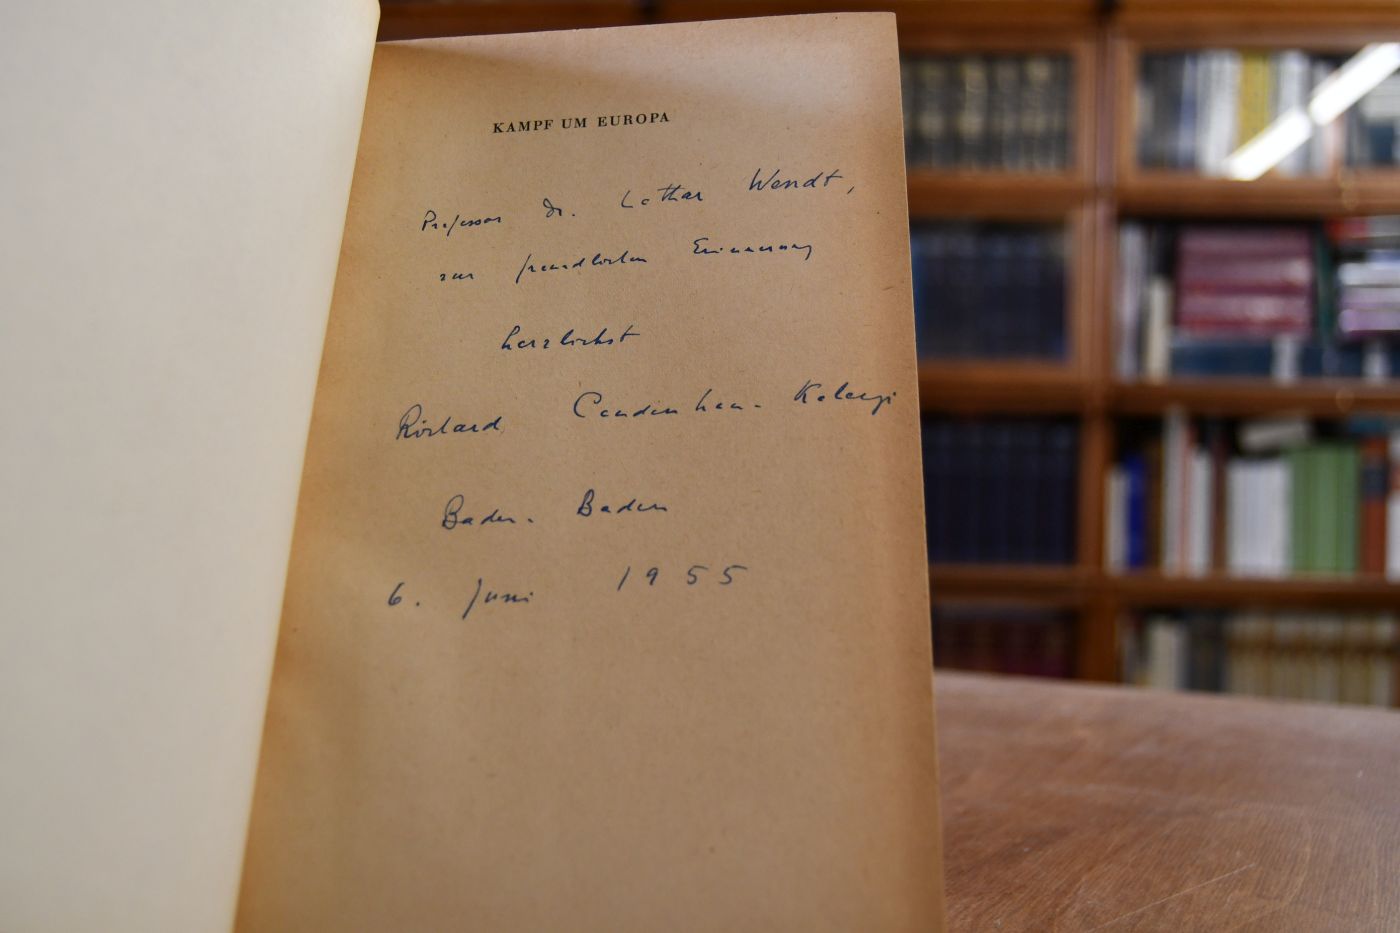 KAMPF UM EUROPA
Professor Dr. Lothar Wendt,
zur freundlichen Erinnerung
herzlichst
Richard Coudenhove-Kalergi
Baden-Baden
6. Juni 1955